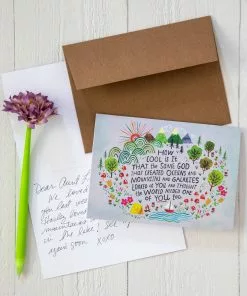 HOW
COOL IS IT
THAT THE SAME GOD
THAT CREATED OCEANS AND
MOUNTAINS AND GALAXIES
LOOKED AT YOU AND THOUGHT
THE WORLD NEEDED ONE
OF YOU, TOO.
Dear Aunt
We loved
you last
Stanley
mountains
in the lake! See
again soon XOXO